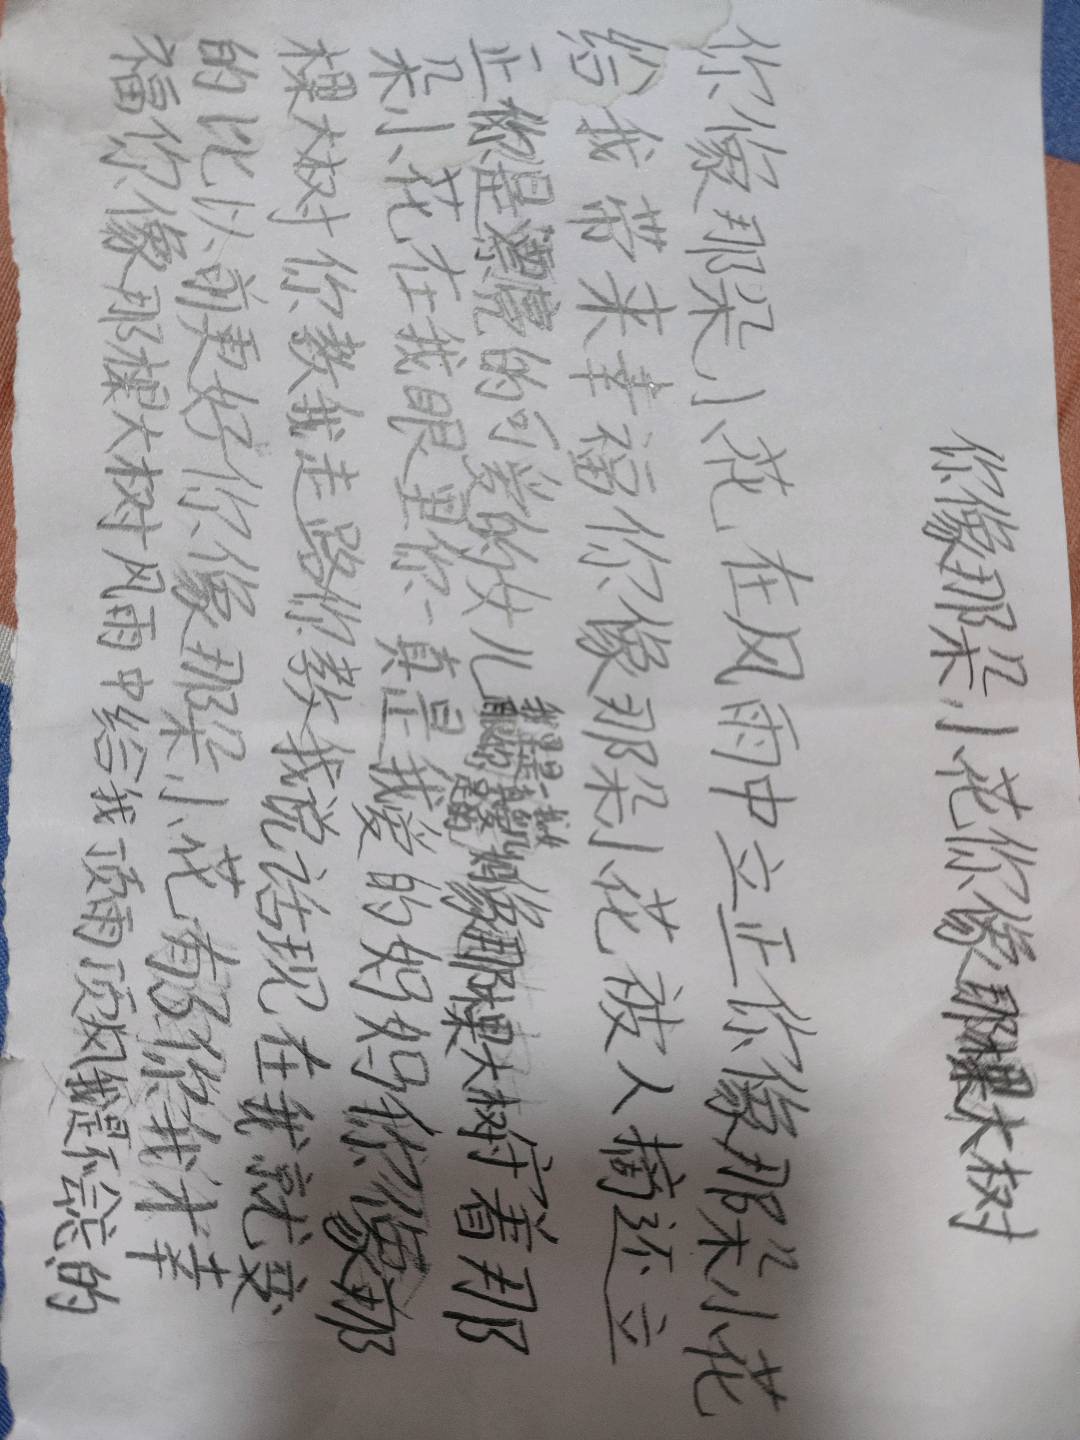 你像那朵小花你像那棵大树
你像那朵小花在风雨中立正你像那朵小花
给我带来幸福你像那朵小花被人摘还立
正你是漂亮的可爱的女儿
像那棵大树守着那
朵小花在我眼里你一真是我爱的妈妈你像那
棵大树你教我走路你教我说话现在我就变
的比以前更好你像那朵小花有了你我才幸
福你像那棵大树风雨中给我顶雨顶风我是不会忘的